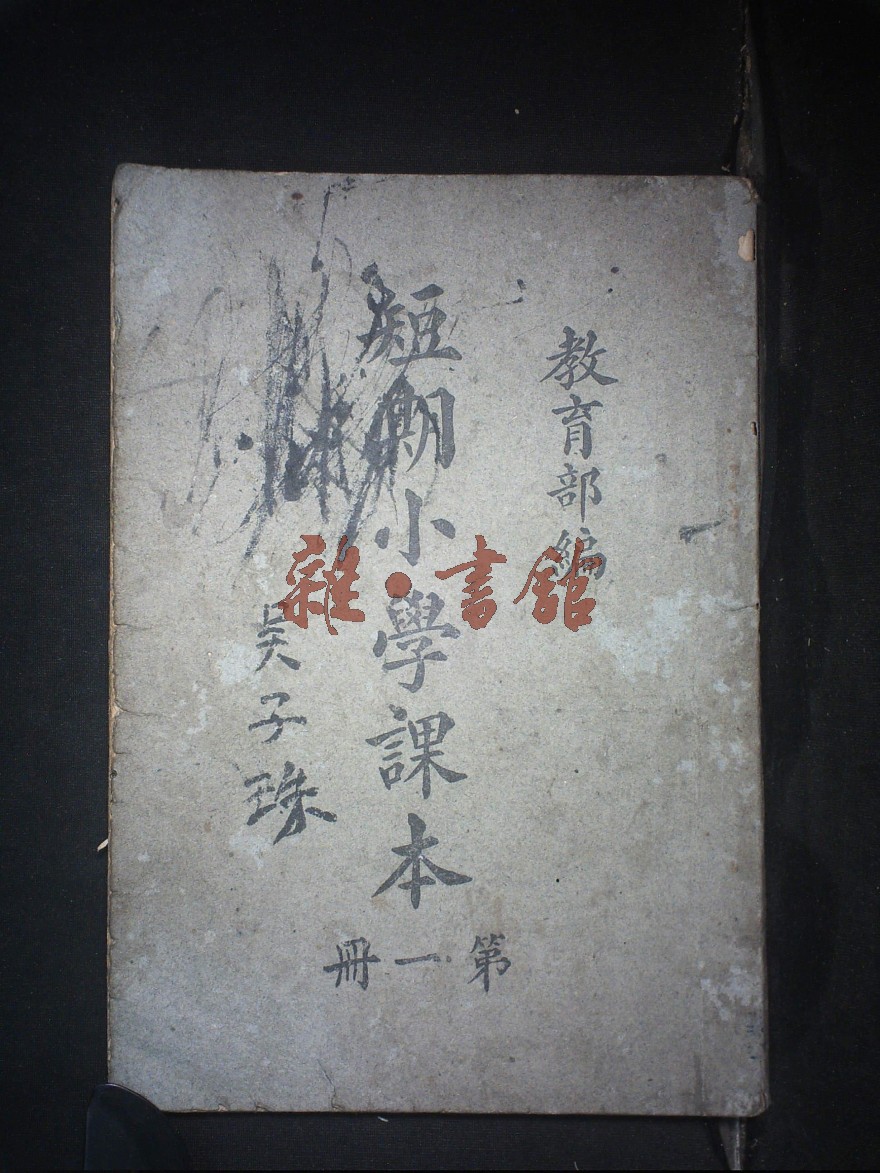 教育部編
短期小學課本
第一冊
吳子珠
雜·書館